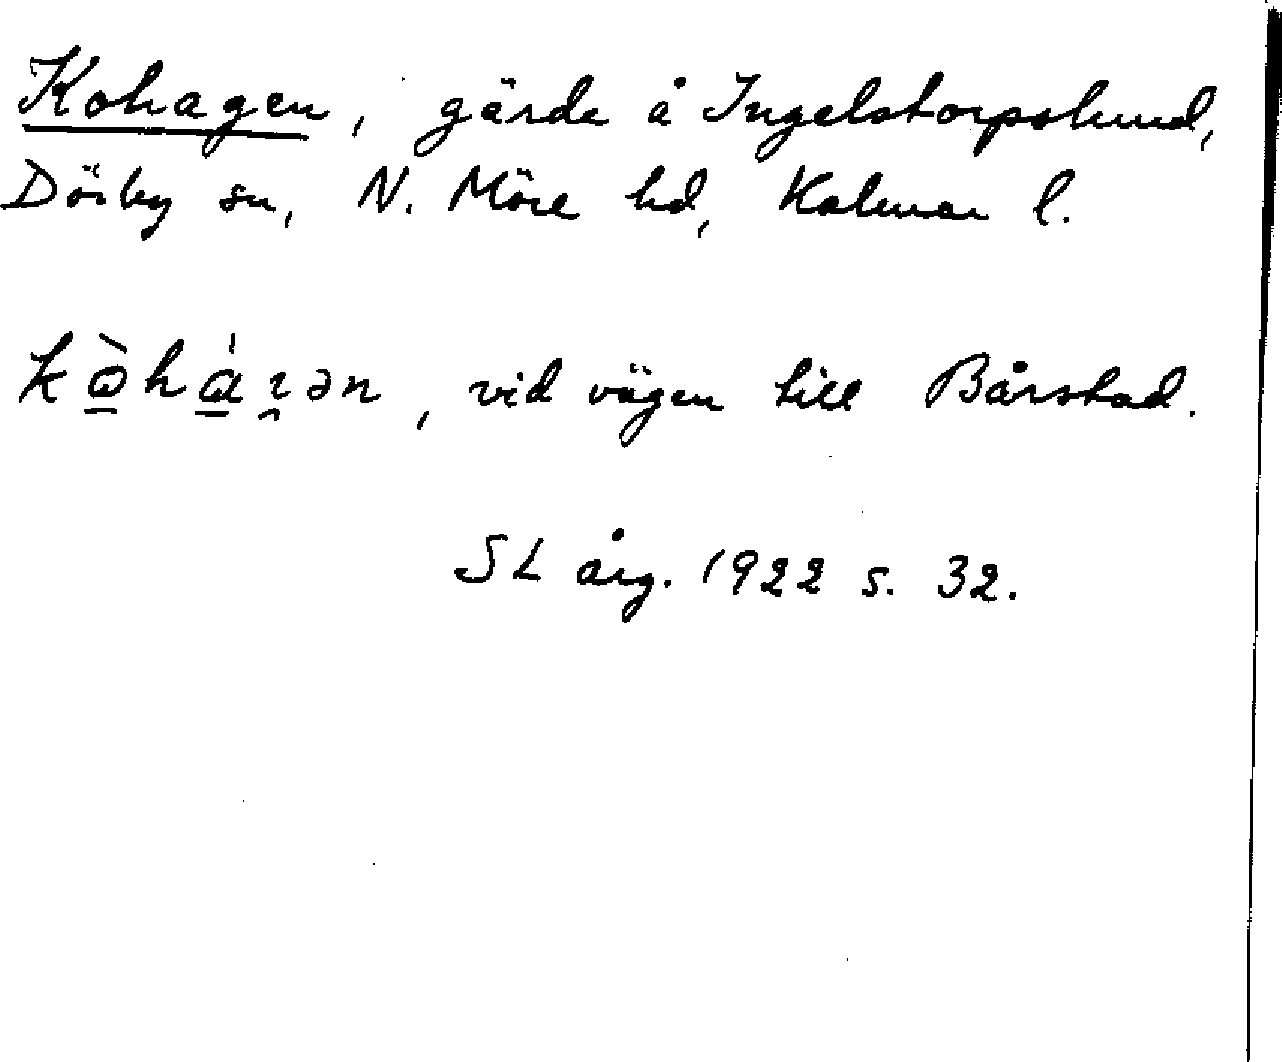 Kohagen, gärde å Ingelstorpslund,
Dörby sn, N. Möre hd, Kalmar l.
kò̱há̱ɪ̯ən, vid vägen till Bårstad.
SL årg. 1922 s. 32.